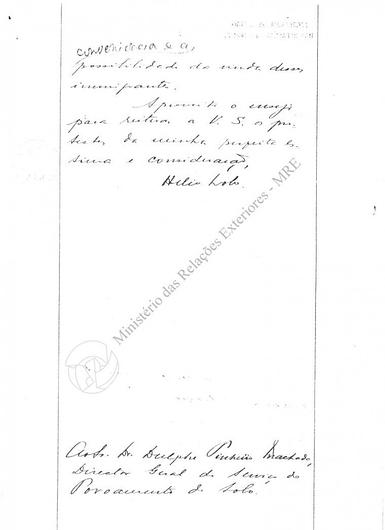 conveniencia e a
possibilidade da vinda desses
immigrantes.
Aproveito o ensejo
para reiterar a V. S. os pro-
testos da minha perfeita es-
tima e consideração,
Helio Lobo.
Ministério das Relações Exteriores - MRE
Ao Sr. Dr. Dulphe Pinheiro Machado,
Director Geral do Serviço do
Povoamento do Solo.